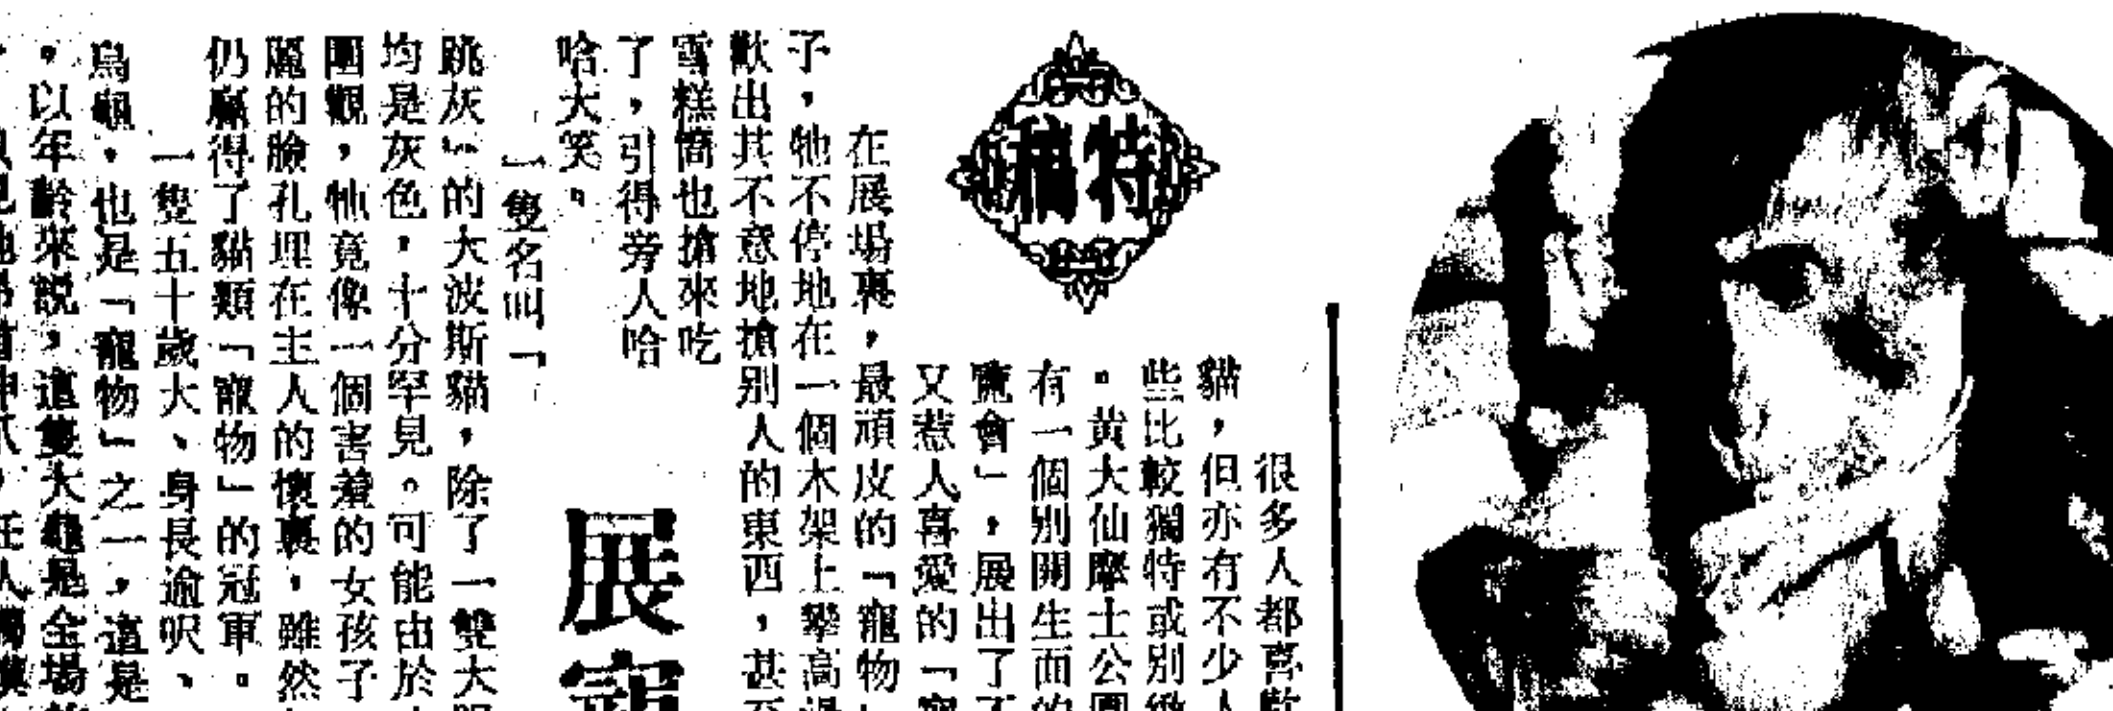 特稿
很多人都喜
貓，但亦有不少人
些比較獨特或別緻
。黃大仙摩士公園
有一個別開生面的
覽會」，展出了不
又惹人喜愛的「寵
在展場裏，最頑皮的「寵物」
子，牠不停地在一個木架上攀高
歡出其不意地搶別人的東西，甚至
雪糕筒也搶來吃
了，引得旁人哈
哈大笑。
展寵
一隻名叫「
跳灰」的大波斯貓，除了一雙大眼
均是灰色，十分罕見。可能由於
圍觀，牠竟像一個害羞的女孩子
麗的臉孔埋在主人的懷裏，雖然
仍贏得了貓類「寵物」的冠軍。
一隻五十歲大、身長逾呎、
烏龜，也是「寵物」之一，這是
。以年齡來說，這隻大龜是全場